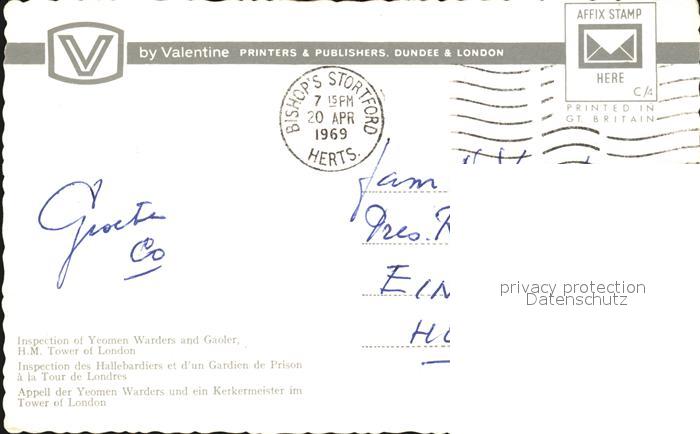 V by Valentine PRINTERS & PUBLISHERS, DUNDEE & LONDON
AFFIX STAMP
HERE
C/4
PRINTED IN
GT. BRITAIN
BISHOP'S STORTFORD
7 15 PM
20 APR
1969
HERTS.
Groeten
Co
Fam
Pres. R
EIN
privacy protection
Datenschutz
Inspection of Yeomen Warders and Gaoler,
H.M. Tower of London
Inspection des Hallebardiers et d'un Gardien de Prison
à la Tour de Londres
Appell der Yeomen Warders und ein Kerkermeister im
Tower of London